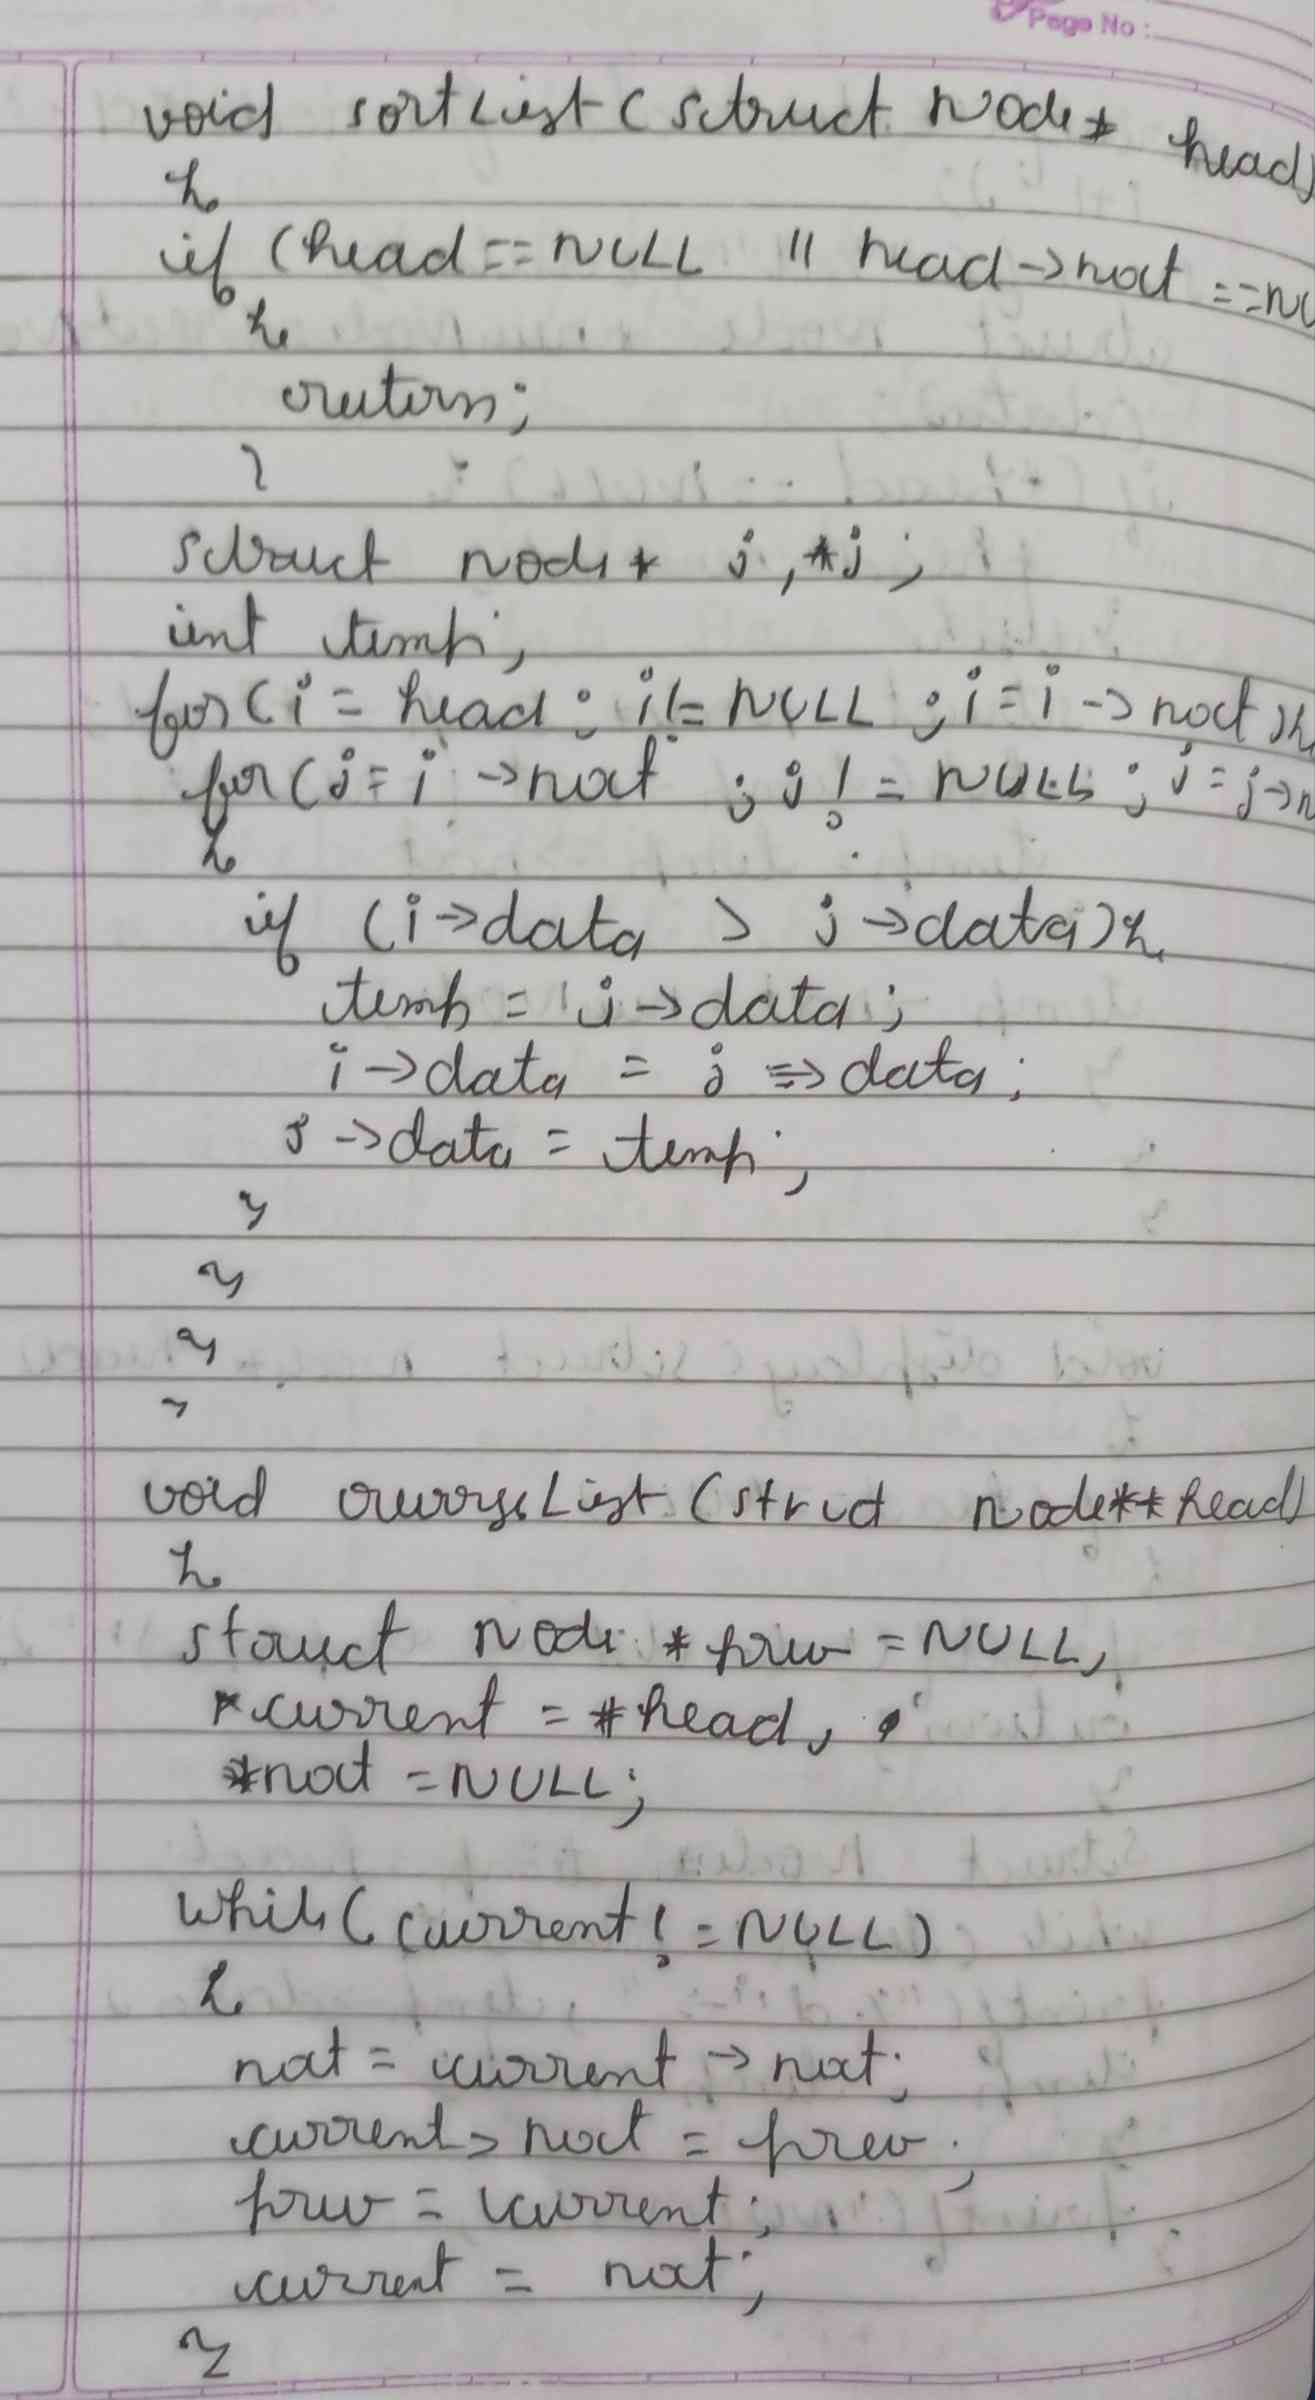 Page No :
void sortList (struct Node* head)
{
if (head == NULL || head->next == NU
{
return;
}
struct node* i, *j;
int temp;
for (i = head ; i != NULL ; i = i -> next ) {
for (j = i -> next ; j != NULL ; j = j -> n
{
if (i->data > j ->data) {
temp = i ->data ;
i ->data = j => data ;
j ->data = temp;
}
}
}
}
void reverseList (struct node** head)
{
struct node *prev = NULL,
*current = *head,
*next = NULL;
while ( current != NULL)
{
next = current -> next;
current -> next = prev ;
prev = current ;
current = next;
}